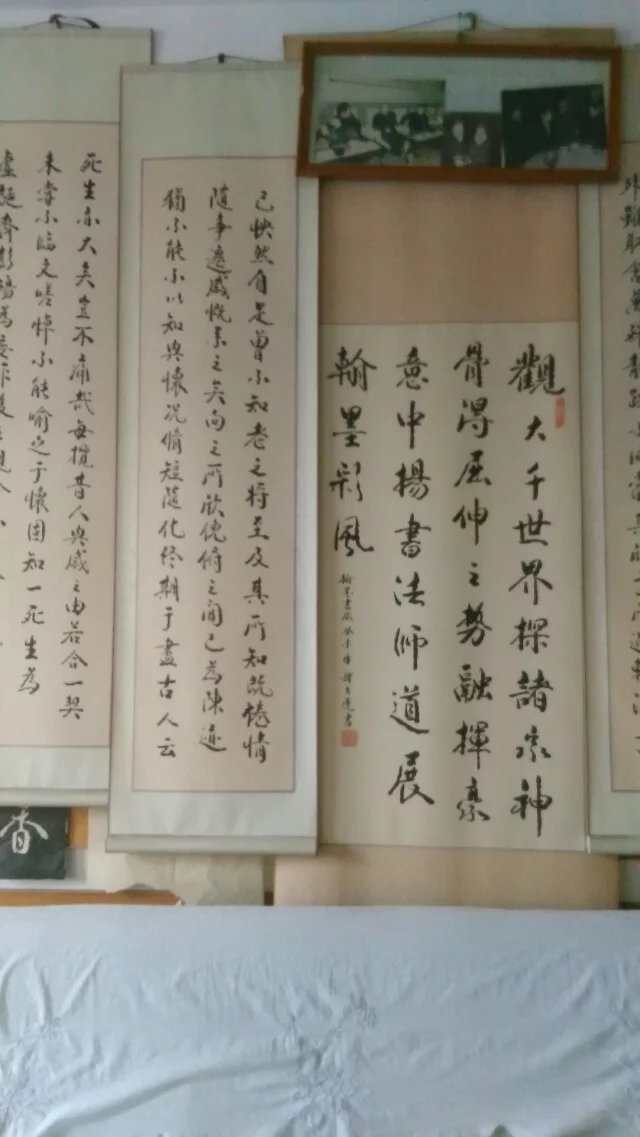 外雖取舍萬殊靜躁不同當其欣于所遇暫得
觀大千世界探諸家神
骨得屈伸之勢融揮豪
意中揚書法師道展
翰墨彩風
己快然自足曾不知老之將至及其所知既惓情
隨事遷感慨系之矣向之所欣俛俯之間已為陳迹
猶不能不以知興懷況脩短隨化終期于盡古人云
死生亦大矣豈不痛哉每攬昔人興感之由若合一契
未嘗不臨文嗟悼不能喻之于懷固知一死生為
虛誕齊彭殤為妄作後之視今
香